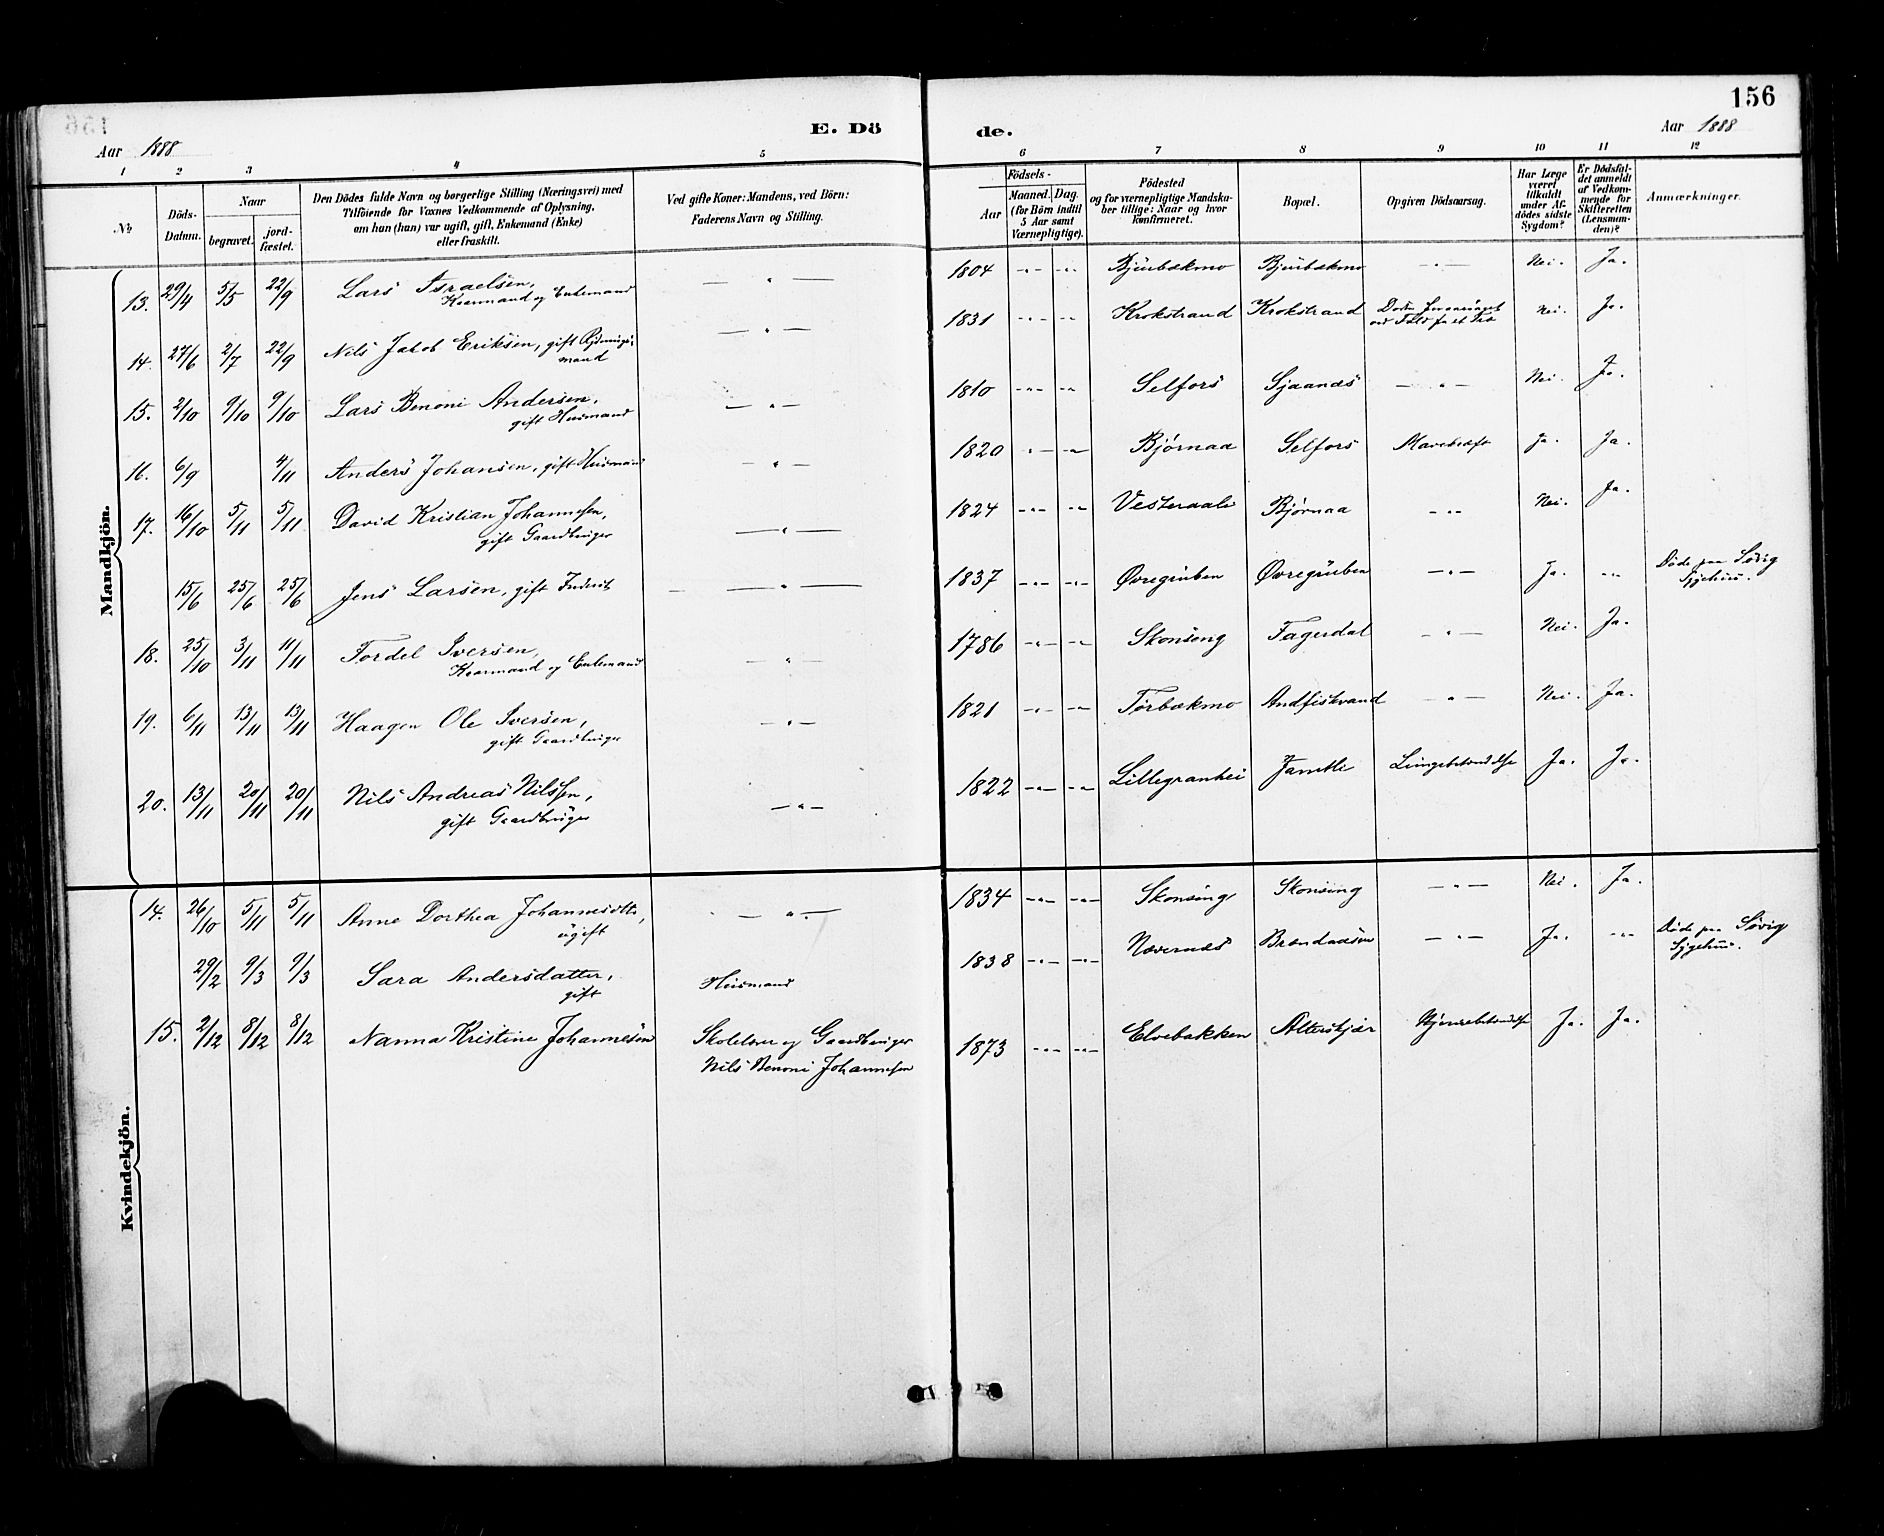 156
E. Dö de.
Aar 1888 Aar 1888
1 2 3 4 5 6 7 8 9 10 11 12
No
Döds-Datum.
Naar
begravet.
jord-fæstet.
Den Dödes fulde Navn og borgerlige Stilling (Næringsvei) med
Tilföiende for Voxnes Vedkommende af Oplysning,
om han (hun) var ugift, gift, Enkemand (Enke)
eller fraskilt.
Ved gifte Koner: Mandens, ved Börn:
Faderens Navn og Stilling.
Födsels-
Aar
Maaned. Dag.
(for Börn indtil
5 Aar samt
Værnepligtige).
Födested
og for værnepligtige Mandska-
ber tillige: Naar og hvor
konfirmeret.
Bopæl.
Opgiven Dödsaarsag.
Har Læge
været
tilkaldt
under Af-
dödes sidste
Sygdom?
Er Dödsfal-
det anmeldt
af Vedkom-
mende for
Skifteretten
(Lensman-
den)?
Anmærkninger.
Mandkjön.
13. 29/4 5/5 22/9 Lars Israelsen, Kaarmand og Enkemand — " — 1804 -"- -"- Bjurbækmo Bjurbækmo — " — Nei. Ja.
14. 27/6 2/7 22/9 Nils Jakob Eriksen, gift Rydningsmand — " — 1831 -"- -"- Krokstrand Krokstrand Nei. Ja.
15. 2/10 9/10 9/10 Lars Benoni Andersen, gift Husmand — " — 1810 -"- -"- Selfors Sjaanæs — " — Nei. Ja.
16. 6/9 4/11 Anders Johansen, gift Husmand — " — 1820 -"- -"- Bjørnaa Selfors Mavekræft Ja. Ja.
17. 16/10 5/11 5/11 David Kristian Johannesen, gift Gaardbruger — " — 1824 -"- -"- Vesteraalen Bjørnaa — " — Nei. Ja.
15/6 25/6 25/6 Jens Larsen, gift Inderst — " — 1837 -"- -"- Øvregruben Øvregruben — " — Ja. -"- Døde paa Søvig Sygehus.
18. 25/10 3/11 11/11 Fordel Iversen, Kaarmand og Enkemand — " — 1786 -"- -"- Skonseng Fagerdal — " — Nei. Ja.
19. 6/11 13/11 13/11 Haagen Ole Iversen, gift Gaardbruger — " — 1821 -"- -"- Tørbækmo Andfiskvand — " — Nei. Ja.
20. 13/11 20/11 20/11 Nils Andreas Nilssen, gift Gaardbruger — " — 1822 -"- -"- Lillegranhei Jamtli Lungebetændelse Ja. Ja.
Kvindekjön.
14. 26/10 5/11 5/11 Anne Dorthea Johannesdtr, ugift — " — 1834 -"- -"- Skonseng Skonseng — " — Nei. Ja.
29/2 9/3 9/3 Sara Andersdatter, gift Husmand 1838 -"- -"- Nævernæs Brændaasen — " — Ja. -"- Døde paa Søvig Sygehus.
15. 2/12 8/12 8/12 Nanna Kristine Johannesen Skolelærer og Gaardbruger
Nils Benoni Johannesen 1873 -"- -"- Elvebakken Alterskjær Hjernebetændelse Ja. Ja.